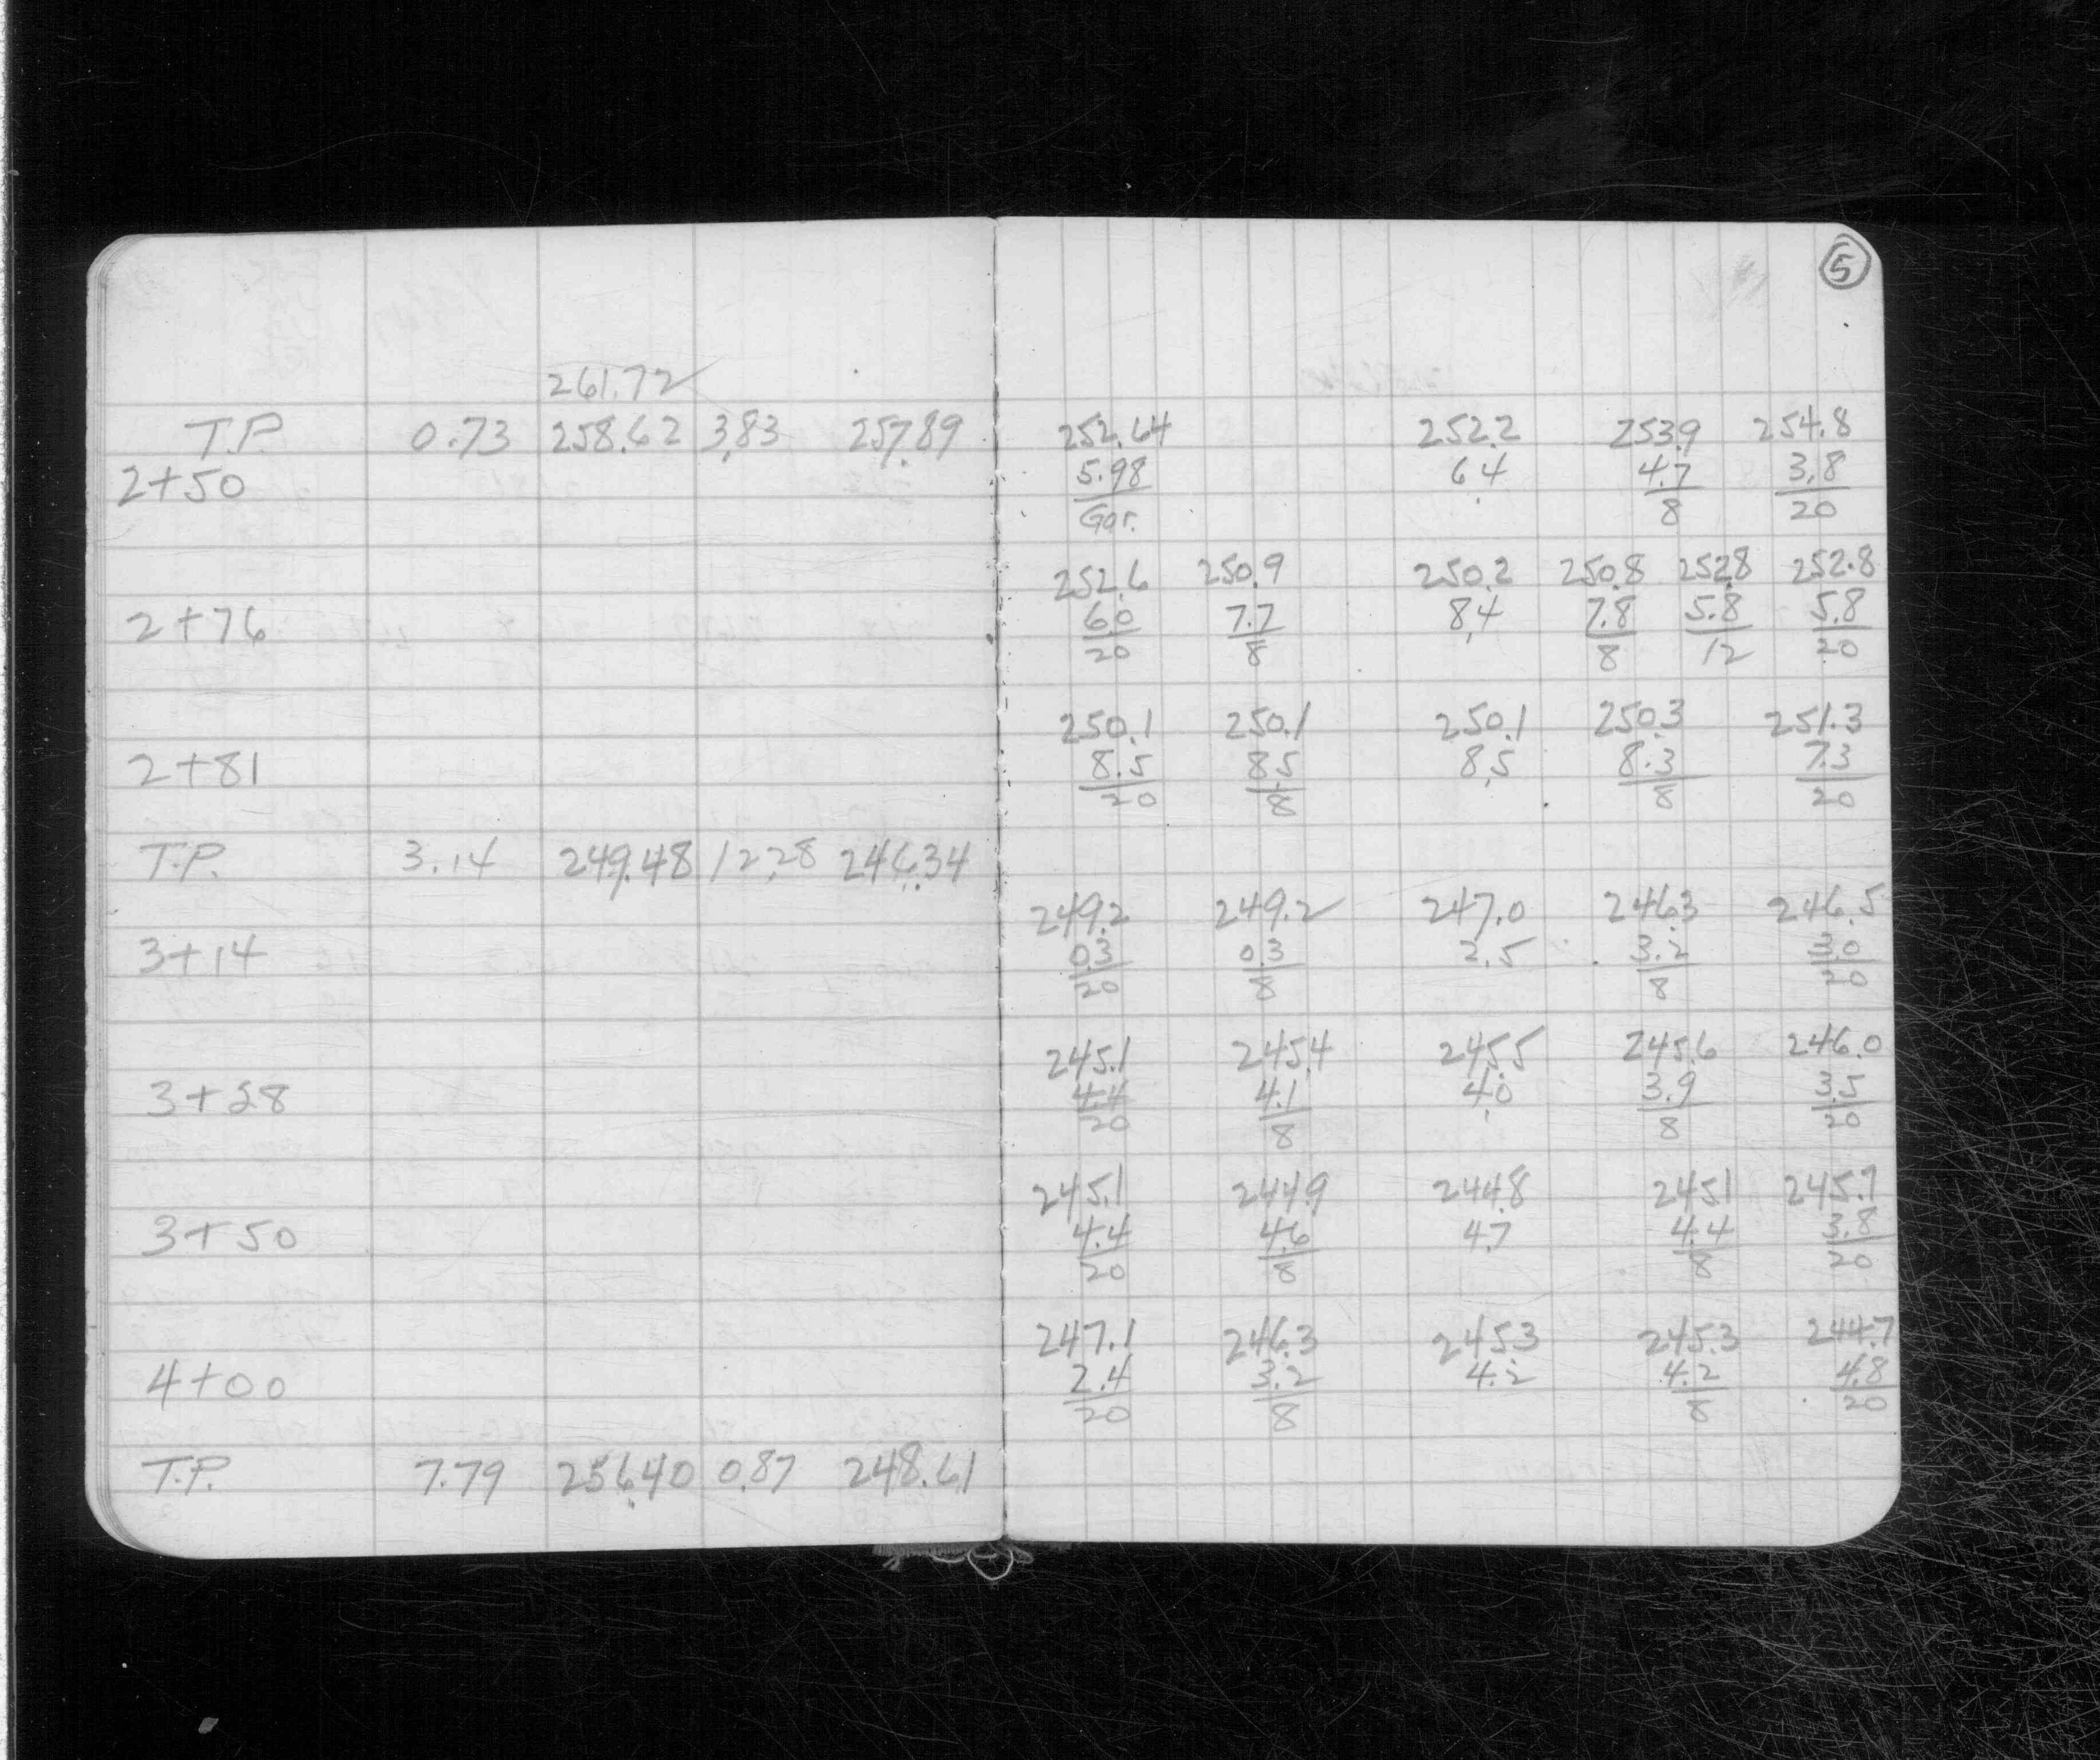 5
261.72
T.P. 0.73 258.62 3.83 257.89 252.64 252.2 253.9 254.8
2+50 5.98 6.4 4.7 3.8
Gar. 8 20
252.6 250.9 250.2 250.8 252.8 252.8
2+76 6.0 7.7 8.4 7.8 5.8 5.8
20 8 8 12 20
250.1 250.1 250.1 250.3 251.3
2+81 8.5 8.5 8.5 8.3 7.3
20 8 8 20
T.P. 3.14 249.48 12.28 246.34
249.2 249.2 247.0 246.3 246.5
3+14 0.3 0.3 2.5 3.2 3.0
20 8 8 20
245.1 245.4 245.5 245.6 246.0
3+28 4.4 4.1 4.0 3.9 3.5
20 8 8 20
245.1 244.9 244.8 245.1 245.7
3+50 4.4 4.6 4.7 4.4 3.8
20 8 8 20
247.1 246.3 245.3 245.3 244.7
4+00 2.4 3.2 4.2 4.2 4.8
20 8 8 20
T.P. 7.79 256.40 0.87 248.61